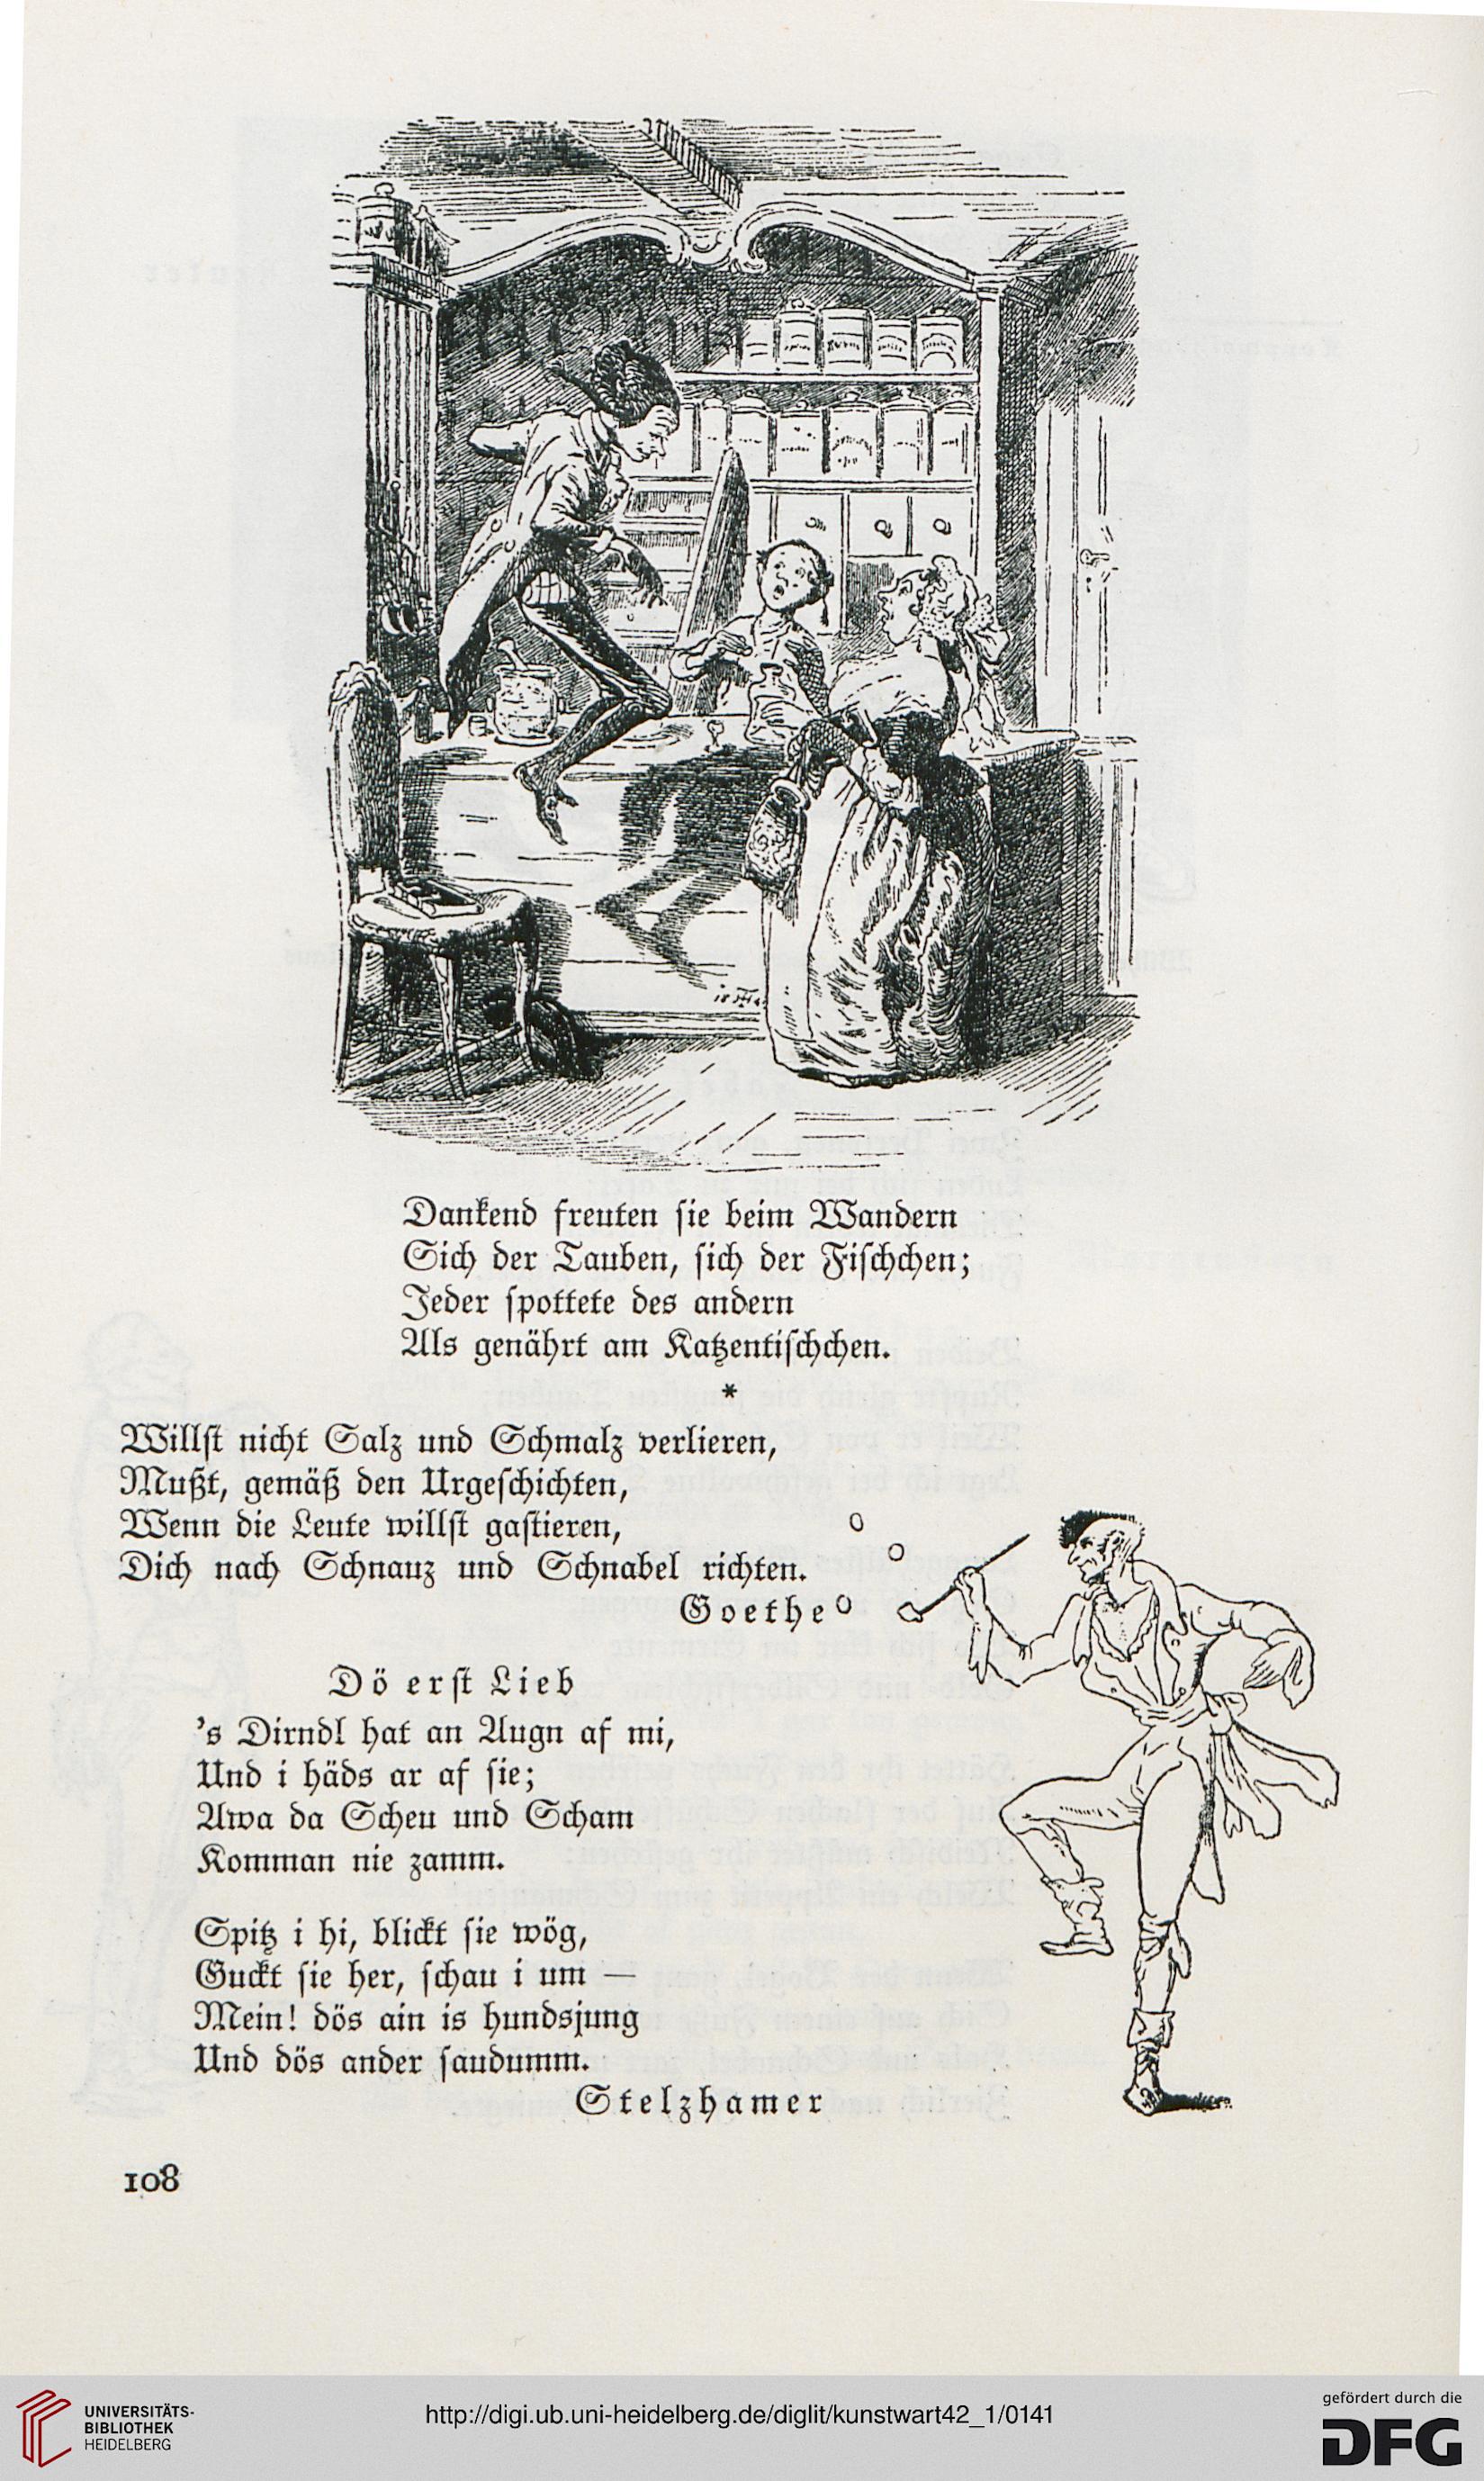 Dankend freuten sie beim Wandern
Sich der Tauben, sich der Fischchen;
Jeder spottete des andern
Als genährt am Katzentischchen.
*
Willst nicht Salz und Schmalz verlieren,
Mußt, gemäß den Urgeschichten,
Wenn die Leute willst gastieren,
Dich nach Schnauz und Schnabel richten.
Goethe
Dö erst Lieb
's Dirndl hat an Augn af mi,
Und i häds ar af sie;
Awa da Scheu und Scham
Komman nie zamm.
Spitz i hi, blickt sie wög,
Guckt sie her, schau i um —
Mein! dös ain is hundsjung
Und dös ander saudumm.
Stelzhamer
108
UNIVERSITÄTS-
BIBLIOTHEK
HEIDELBERG
http://digi.ub.uni-heidelberg.de/diglit/kunstwart42_1/0141
gefördert durch die
DFG